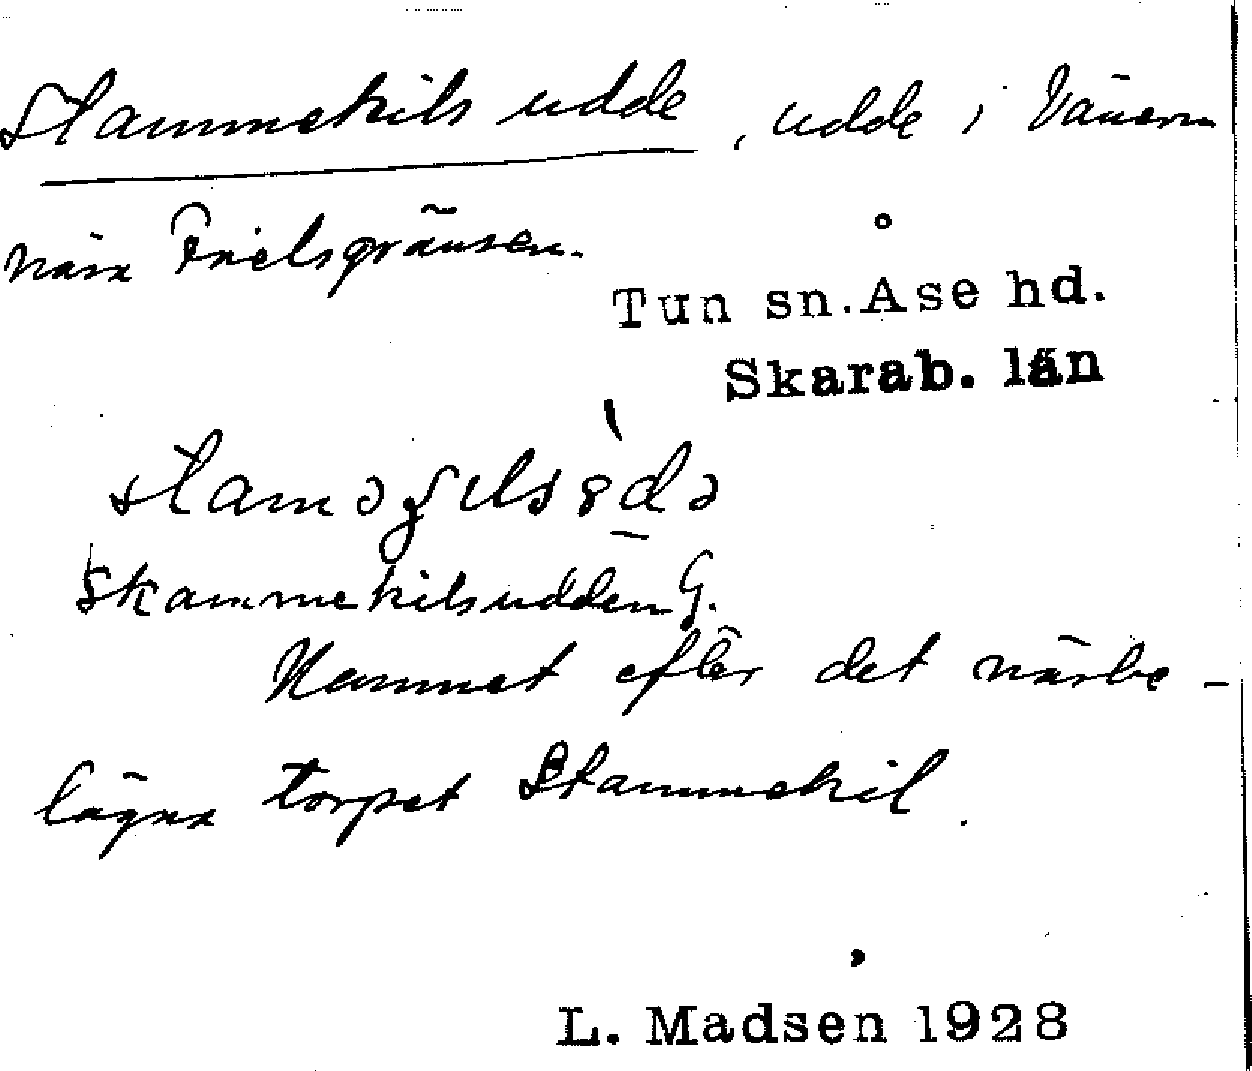 Stammekils udde, udde i Vänern
nära Frielsgränsen.
Tun sn. Åse hd.
Skarab. län
Skammekilsudden G.
Namnet efter det närbe-
lägna torpet Stammekil.
L. Madsen 1928